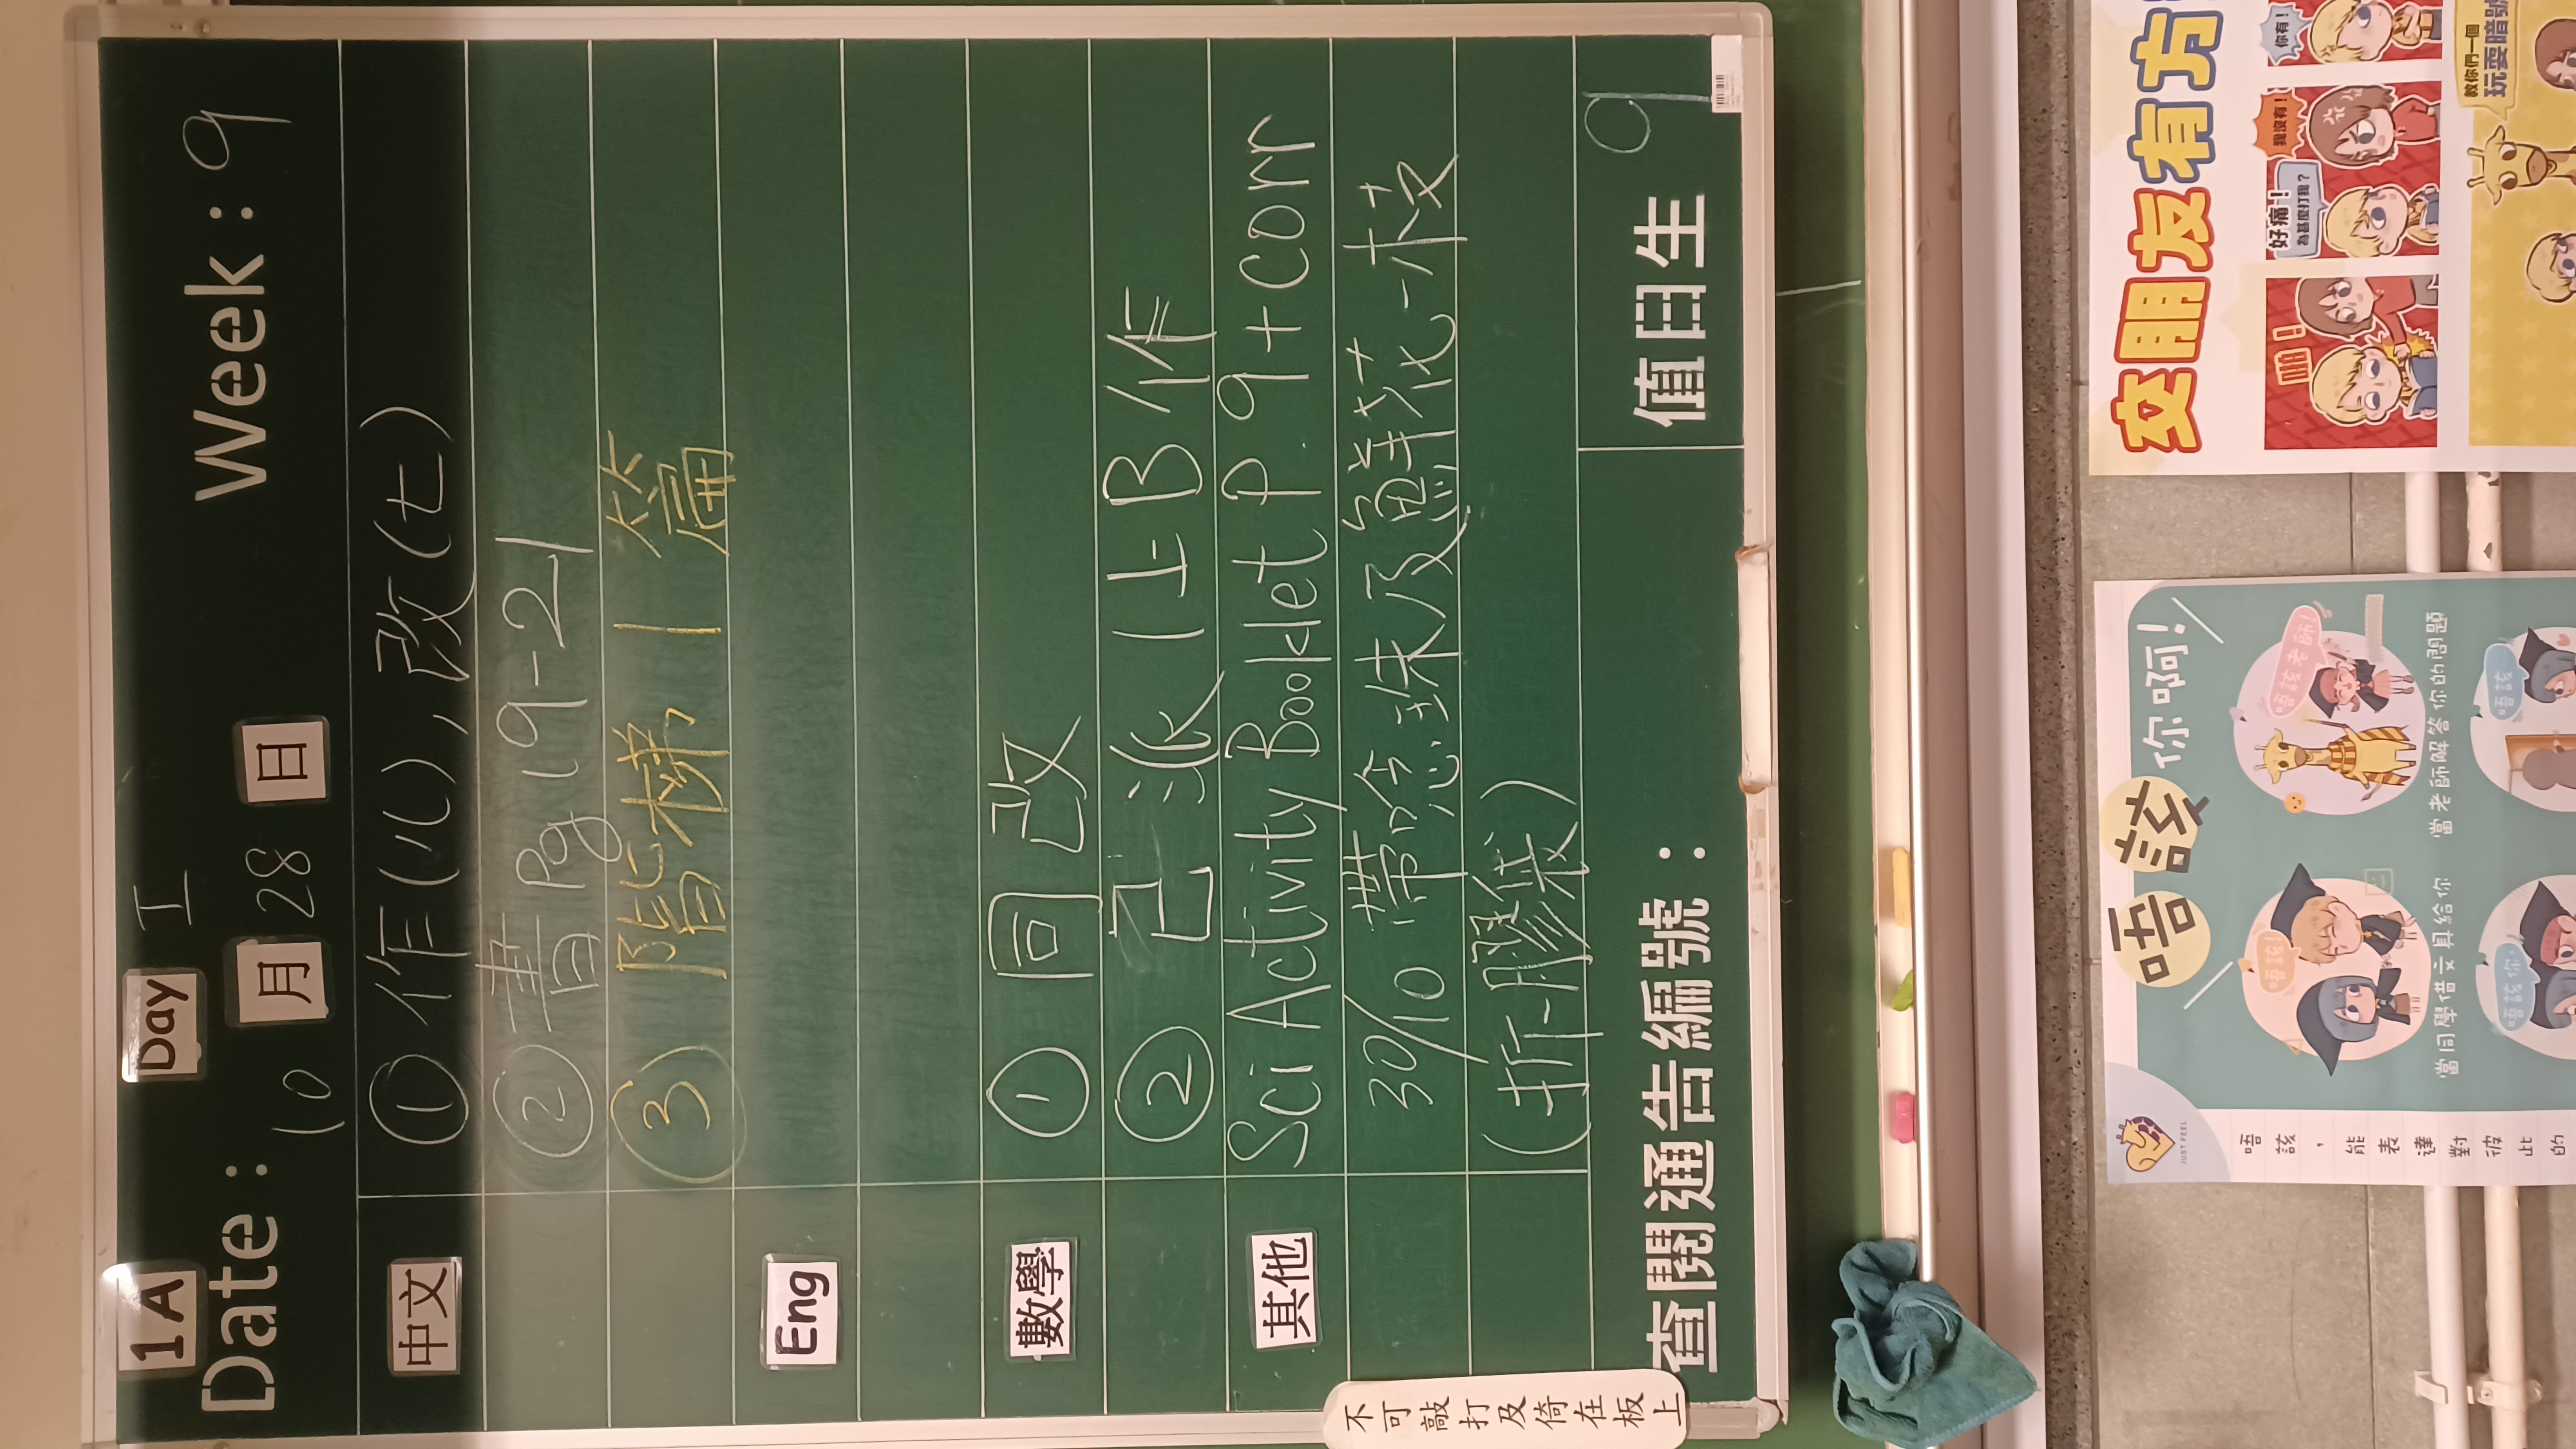 1A Day I
Date : 10 月 28 日 Week : 9
中文 ① 作(八), 改(七)
② 書Pg 19-21
③ 階梯 1 篇
Eng
數學 ① 回改
② 已派 1上B作
其他 Sci Activity Booklet P.9+corr
30/10 帶唸珠及鮮花一枝
(拆膠袋)
查閱通告編號 : 值日生 9
不可敲打及倚在板上
交朋友有方
啪!
好痛!
為甚麼打我?
我沒有!
你有!
教你們一個
玩耍暗號
唔該你啊!
唔該!
唔該老師!
當同學借文具給你
當老師解答你的問題
唔該你
唔該
JUST FEEL
唔該,能表達對彼此的